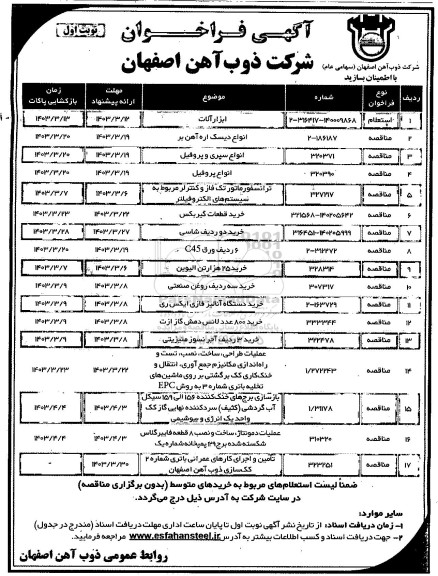 آگهی فراخوان
نوبت اول
شرکت ذوب آهن اصفهان
شرکت ذوب آهن اصفهان (سهامی عام)
با اطمینان بسازید
ردیف نوع فراخوان شماره موضوع مهلت ارائه پیشنهاد زمان بازگشایی پاکات
۱ استعلام ابزارآلات ۱۴۰۳/۳/۱۲ ۱۴۰۳/۳/۱۳
۲ مناقصه ۲-۱۸۶۱۸۷ انواع دیسک اره آهن بر ۱۴۰۳/۳/۱۹ ۱۴۰۳/۳/۲۰
۳ مناقصه ۳۲۰۳۷۱ انواع سپری و پروفیل ۱۴۰۳/۳/۱۹ ۱۴۰۳/۳/۲۰
۴ مناقصه ۳۲۰۳۹۰ انواع پروفیل ۱۴۰۳/۳/۱۹ ۱۴۰۳/۳/۲۰
۵ مناقصه ۳۲۷۱۹۷ ترانسفورماتور تک فاز و کنترلر مربوط به سیستم‌های الکتروفیلتر ۱۴۰۳/۳/۶ ۱۴۰۳/۳/۷
۶ مناقصه ۳۲۱۵۶۸-۱۴۰۲۰۵۶۴۲ خرید قطعات گیربکس ۱۴۰۳/۳/۲۲ ۱۴۰۳/۳/۲۳
۷ مناقصه ۳۱۶۴۵۱-۱۴۰۲۰۵۹۹۹ خرید دو ردیف شاسی ۱۴۰۳/۳/۲۷ ۱۴۰۳/۳/۲۸
۸ مناقصه ۲-۳۱۲۲۷۶ ۶ ردیف ورق C45 ۱۴۰۳/۳/۱۹ ۱۴۰۳/۳/۲۰
۹ مناقصه ۳۲۸۳۱۴ خرید ۲۵ هزار تن الیوین ۱۴۰۳/۳/۶ ۱۴۰۳/۳/۷
۱۰ مناقصه ۳۰۷۳۱۷ خرید سه ردیف روغن صنعتی ۱۴۰۳/۳/۸ ۱۴۰۳/۳/۹
۱۱ مناقصه ۲-۱۶۳۷۲۹ خرید دستگاه آنالیز فازی ایکس ری ۱۴۰۳/۳/۸ ۱۴۰۳/۳/۹
۱۲ مناقصه ۳۳۳۳۴۴ خرید ۸۰۰ عدد لانس دمش گاز ازت ۱۴۰۳/۳/۸ ۱۴۰۳/۳/۹
۱۳ مناقصه ۳۲۲۴۷۸ خرید ۳ ردیف آجر نسوز منیزیتی ۱۴۰۳/۳/۸ ۱۴۰۳/۳/۹
۱۴ مناقصه ۱/۲۷۲۲۴۳ عملیات طراحی، ساخت، نصب، تست و راه‌اندازی مکانیزم جمع آوری، انتقال و خنک‌کاری کک برگشتی بر روی ماشین‌های تخلیه باتری شماره ۳ به روش EPC ۱۴۰۳/۳/۲۲ ۱۴۰۳/۳/۲۳
۱۵ مناقصه ۱/۳۱۱۷۸ بازسازی برج‌های خنک‌کننده ۱۵۶ الی ۱۵۹ سیکل آب گردشی (کثیف) سردکننده نهایی گاز کک واحد یک انرژی و بیوشیمی ۱۴۰۳/۴/۳ ۱۴۰۳/۴/۴
۱۶ مناقصه ۳۱۰۳۲۰ عملیات دمونتاژ، ساخت و نصب ۸ قطعه فایبرگلاس شکسته شده برج ۱۲۹ پمپخانه شماره یک ۱۴۰۳/۴/۳ ۱۴۰۳/۴/۴
۱۷ مناقصه ۳۲۳۲۵۱ تامین و اجرای کارهای عمرانی باتری شماره ۲ کک‌سازی ذوب آهن اصفهان ۱۴۰۳/۳/۳۰ -
ضمناً لیست استعلام‌های مربوط به خریدهای متوسط (بدون برگزاری مناقصه)
در سایت شرکت به آدرس ذیل درج می‌گردد.
سایر موارد:
۱- زمان دریافت اسناد: از تاریخ نشر آگهی نوبت اول تا پایان ساعت اداری مهلت دریافت اسناد (مندرج در جدول)
۲- جهت دریافت اسناد و کسب اطلاعات بیشتر به آدرس www.esfahansteel.ir مراجعه فرمایید.
روابط عمومی ذوب آهن اصفهان